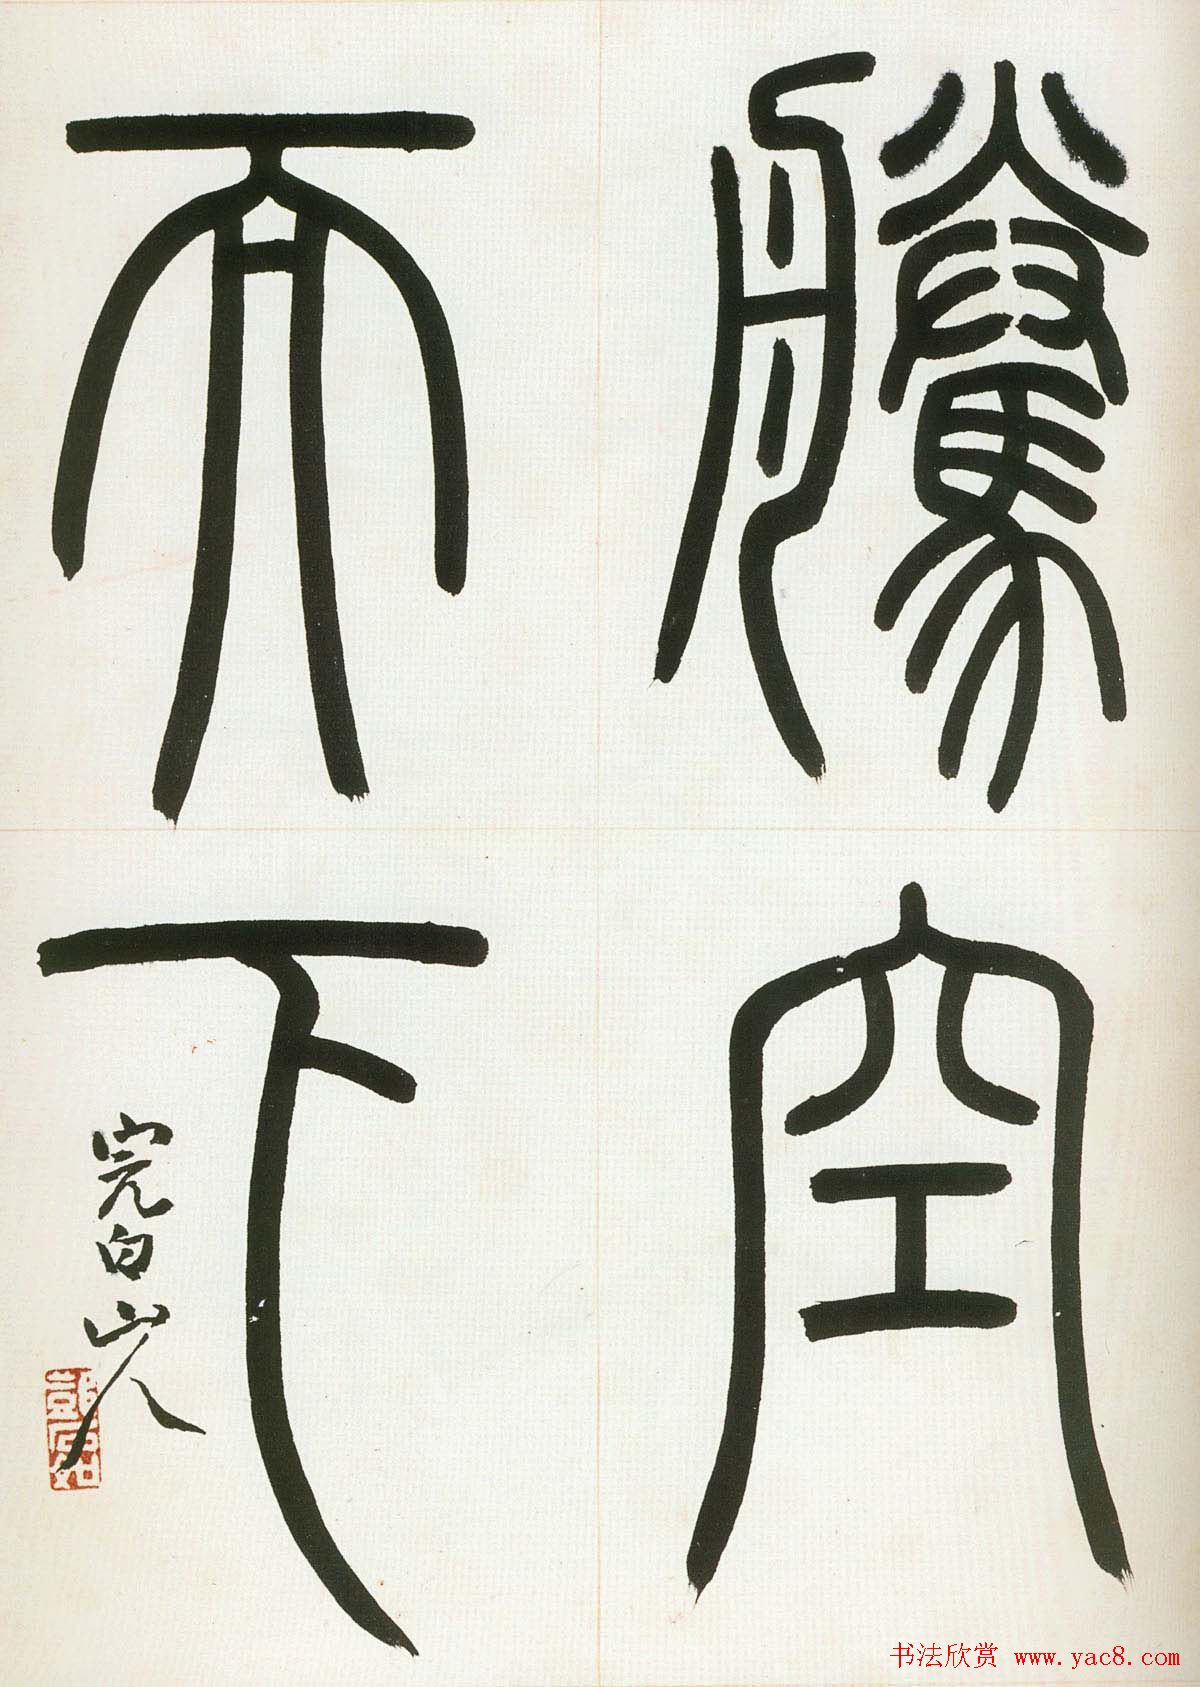 騰空
而下
完白山人
鄧石如
书法欣赏 www.yac8.com